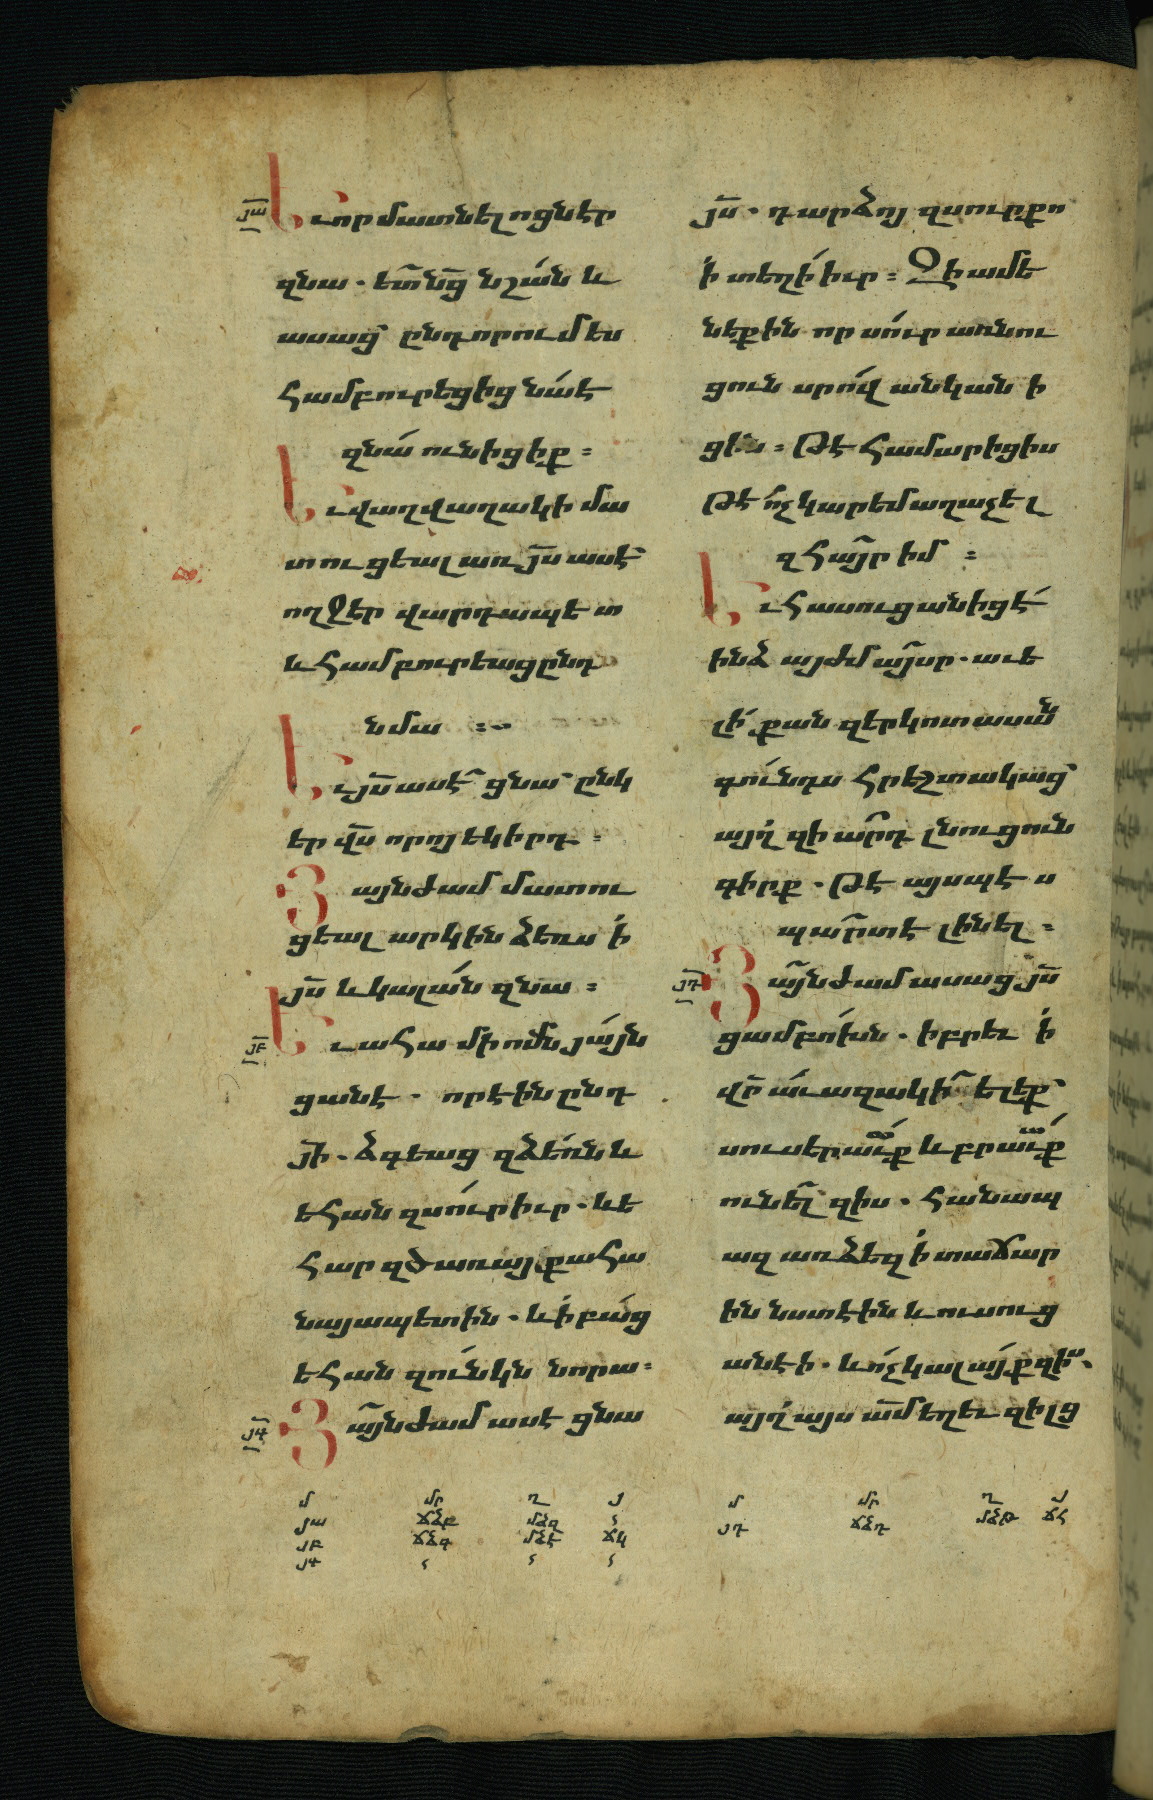 յա
Եւ որ մատնելոցն էր
զնա. ետ նց նշան և
ասաց ընդ որում ես
համբուրեցից նա է
զնա ունիցիք։
Եւ վաղվաղակի մա
տուցեալ առ յս ասէ
ողջ եր վարդապետ
և համբուրեաց ընդ
նմա։
Եւ յս ասէ ցնա ընկ
եր վս որոյ եկիր դ։
Յայնժամ մատու
ցեալ արկին ձեռս ի
յս և կալան զնա։
յբ
Եւ ահա մի ոմն յայն
ցանէ. որ էին ընդ
յի. ձգեաց զձեռն և
եհան զսուր իւր. և ե
հար զծառայ քահա
նայապետին. և ի բաց
եհան զունկն նորա։
յգ
Յայնժամ ասէ ցնա
մ մր ղ յ
յա ճձբ մձգ
յբ ճձգ մձէ ճկ
յգ
յս. դարձո զսուր քո
ի տեղի իւր։ Զի ամե
նեքին որ սուր առնու
ցուն սրով անկանի
ցին։ Թէ համարիցիս
թէ ոչ կարեմ աղաչել
զհայր իմ։
Եւ հասուցանիցէ
ինձ այժմ այսր. աւե
լի քան զերկոտասան
գունդս հրեշտակաց
այղ զի արդ լնուցուն
գիրք. թէ այսպէս
պարտ է լինել։
յդ
Յայնժամ ասաց յս
ցամբոխն. իբրեւ ի
վր աւազակի ելէք
սուսերաւք և բրաւք
ունել զիս. հանապ
ազ առ ձեզ ի տաճար
ին նստէի և ուսուց
անէի. և ոչ կալայք զիս.
այղ այս ամ եղեւ զի լց
մ մր ղ յ
յդ ճձդ մձթ ճհ